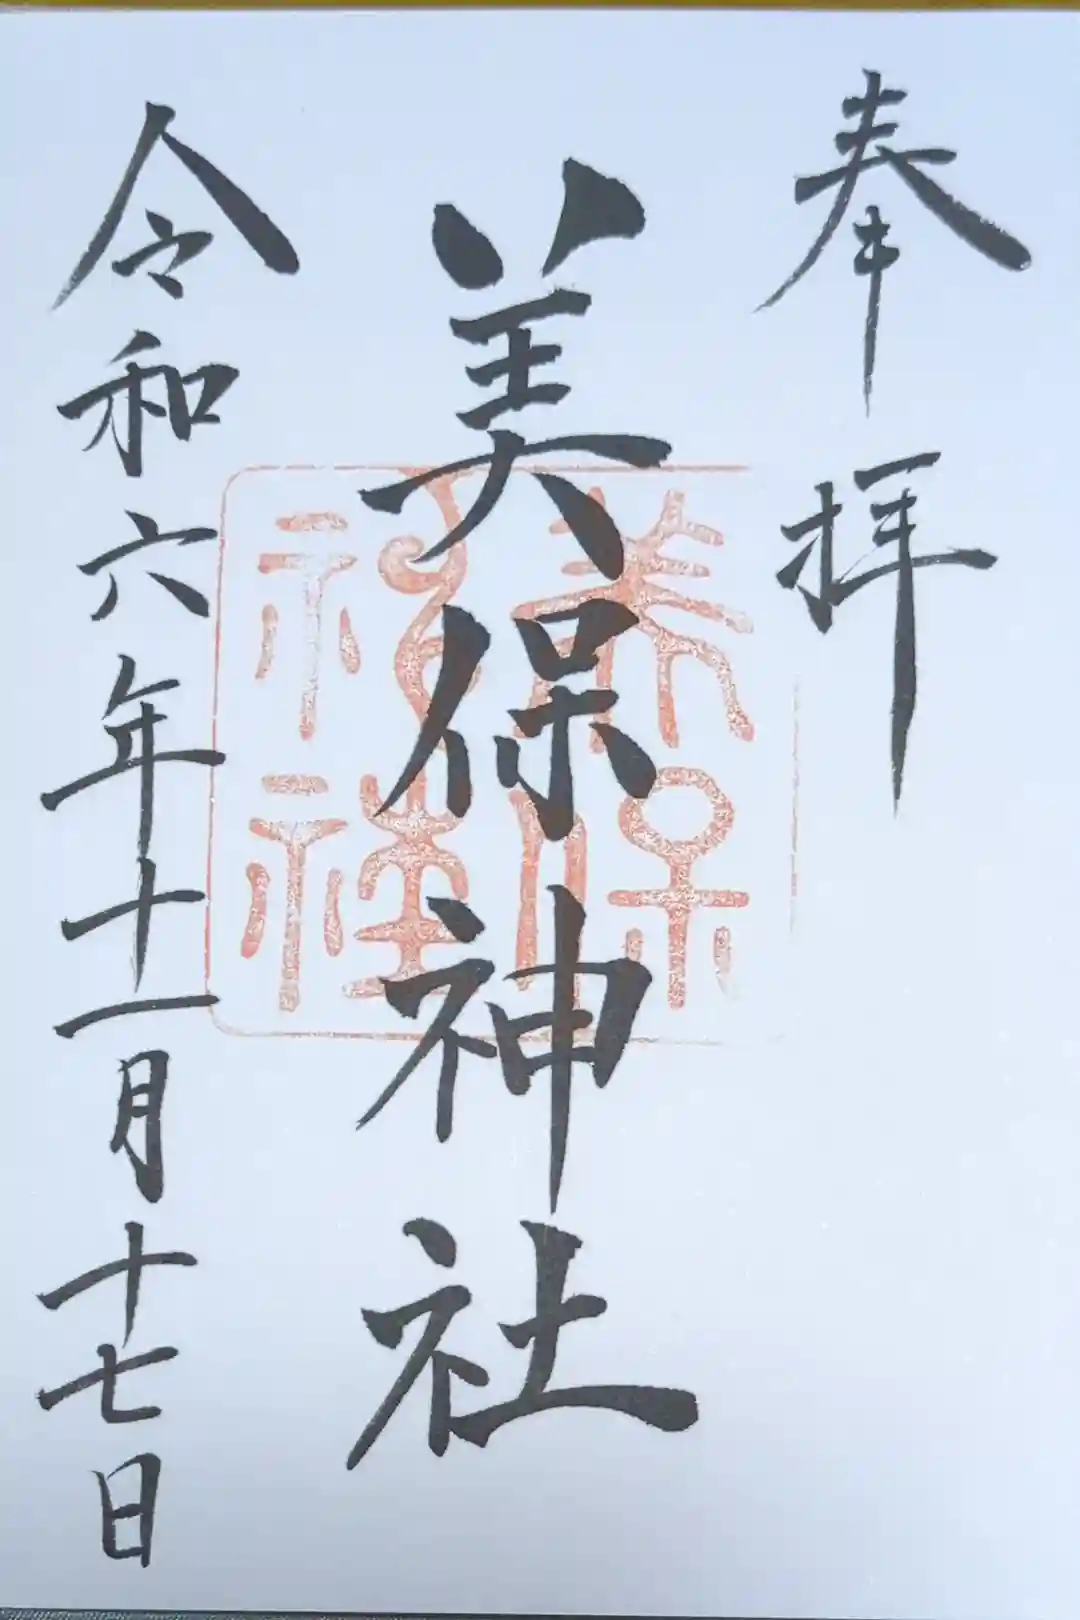 奉拝
美保神社
美保神社
令和六年十一月十七日